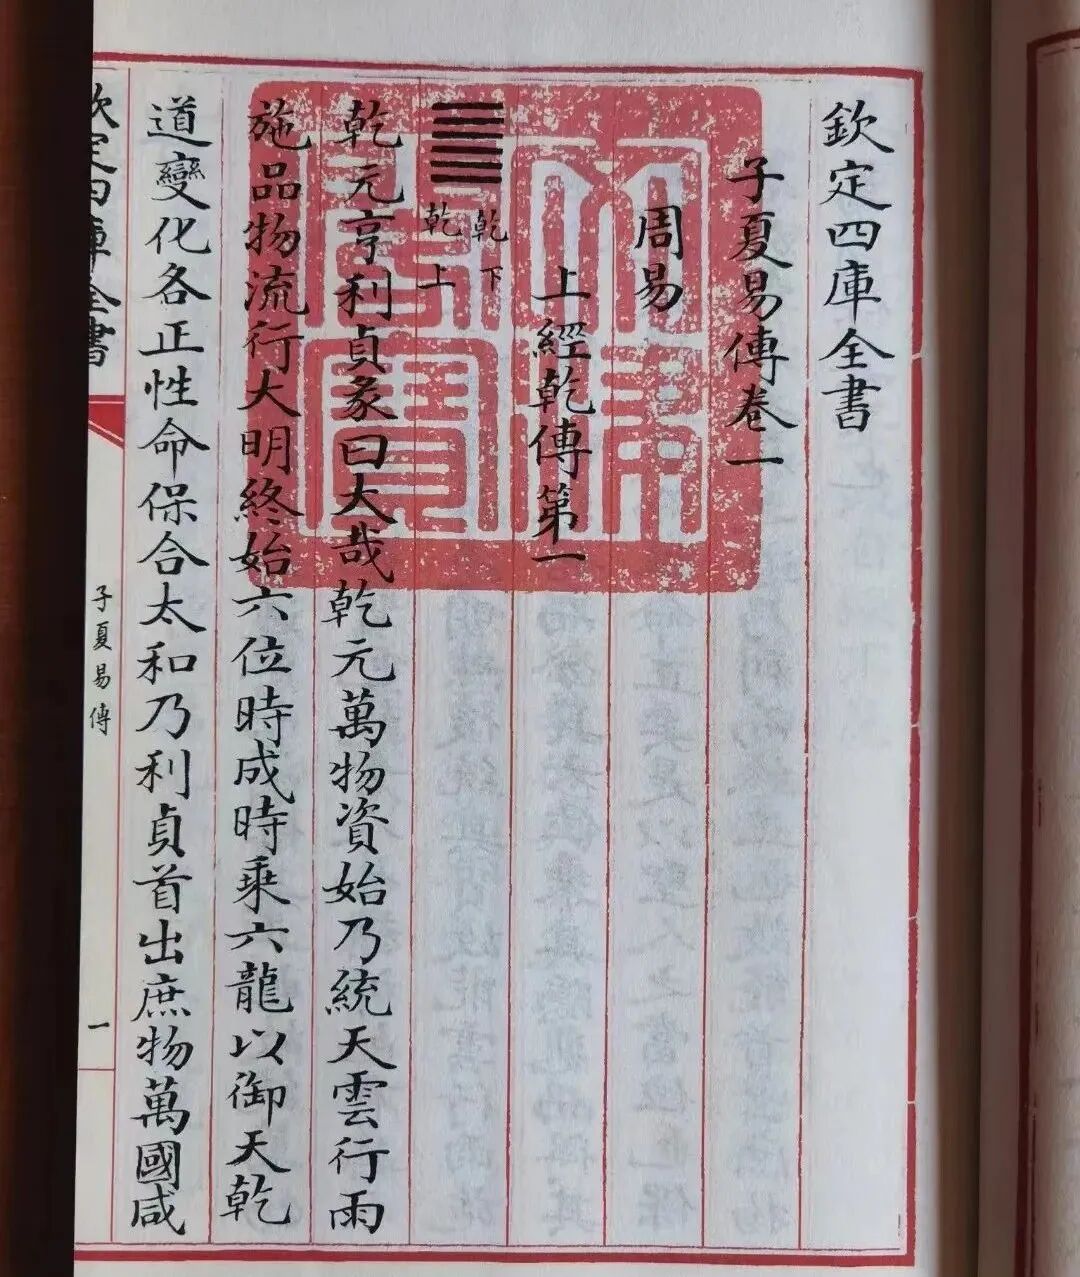 欽定四庫全書
子夏易傳卷一
周易
上經乾傳第一
䷀
乾下
乾上
乾元亨利貞彖曰大哉乾元萬物資始乃統天雲行雨
施品物流行大明終始六位時成時乘六龍以御天乾
道變化各正性命保合太和乃利貞首出庶物萬國咸
欽定四庫全書
子夏易傳
一